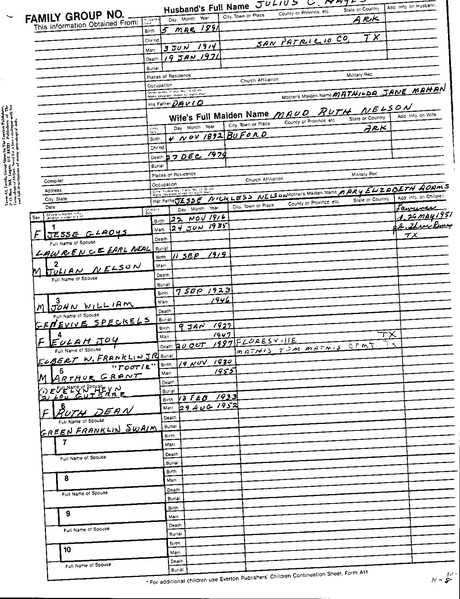 FAMILY GROUP NO.
This information Obtained From:
Husband's Full Name JULIUS C.
Day Month Year City, Town or Place County or Province, etc. State or Country Add. Info. on Husband
Birth 5 MAR 1891 ARK
Chr'nd
Marr. 3 JUN 1914 SAN PATRICIO CO. TX
Death 19 JAN 1971
Burial
Places of Residence
Occupation Church Affiliation Military Rec.
His Father DAVID Mother's Maiden Name MATHILDA JANE MAHAN
Wife's Full Maiden Name MAUD RUTH NELSON
Day Month Year City, Town or Place County or Province, etc. State or Country Add. Info. on Wife
Birth 4 NOV 1892 BUFORD ARK
Chr'nd
Death 27 DEC 1979
Burial
Compiler
Places of Residence
Address
Occupation Church Affiliation Military Rec.
City, State
Date
Her Father JESSE NICKLESS NELSON Mother's Maiden Name MARY ELIZABETH ADAMS
Sex
Day Month Year City, Town or Place County or Province, etc. State or Country Add. Info. on Children
1
F JESSE GLADYS
Birth 22 NOV 1916
Marr. 24 JUN 1935
d. 26 MAY 1951
TX
Full Name of Spouse
Death
Burial
LAWRENCE EARL NEAL
2
M JULIAN NELSON
Birth 11 SEP 1919
Marr.
Full Name of Spouse
Death
Burial
3
M JOHN WILLIAM
Birth 7 SEP 1923
Marr. 1946
Full Name of Spouse
Death
Burial
GENEVIVE SPECKELS
4
F EULAH JOY
Birth 9 JAN 1927
Marr. 1947
Full Name of Spouse
Death 20 OCT 1987 FLORESVILLE TX
Burial MATHIS TX
ELBERT W. FRANKLIN JR
5 "TOOTIE"
M ARTHUR GRANT
Birth 19 NOV 1930
Marr. 1955
Full Name of Spouse
Death
Burial
F RUTH DEAN
Birth 13 FEB 1933
Marr. 29 AUG 1952
Full Name of Spouse
Death
Burial
GREEN FRANKLIN SWAIM
7
Birth
Marr.
Full Name of Spouse
Death
Burial
8
Birth
Marr.
Full Name of Spouse
Death
Burial
9
Birth
Marr.
Full Name of Spouse
Death
Burial
10
Birth
Marr.
Full Name of Spouse
Death
Burial
* For additional children use Everton Publishers' Children Continuation Sheet, Form A11